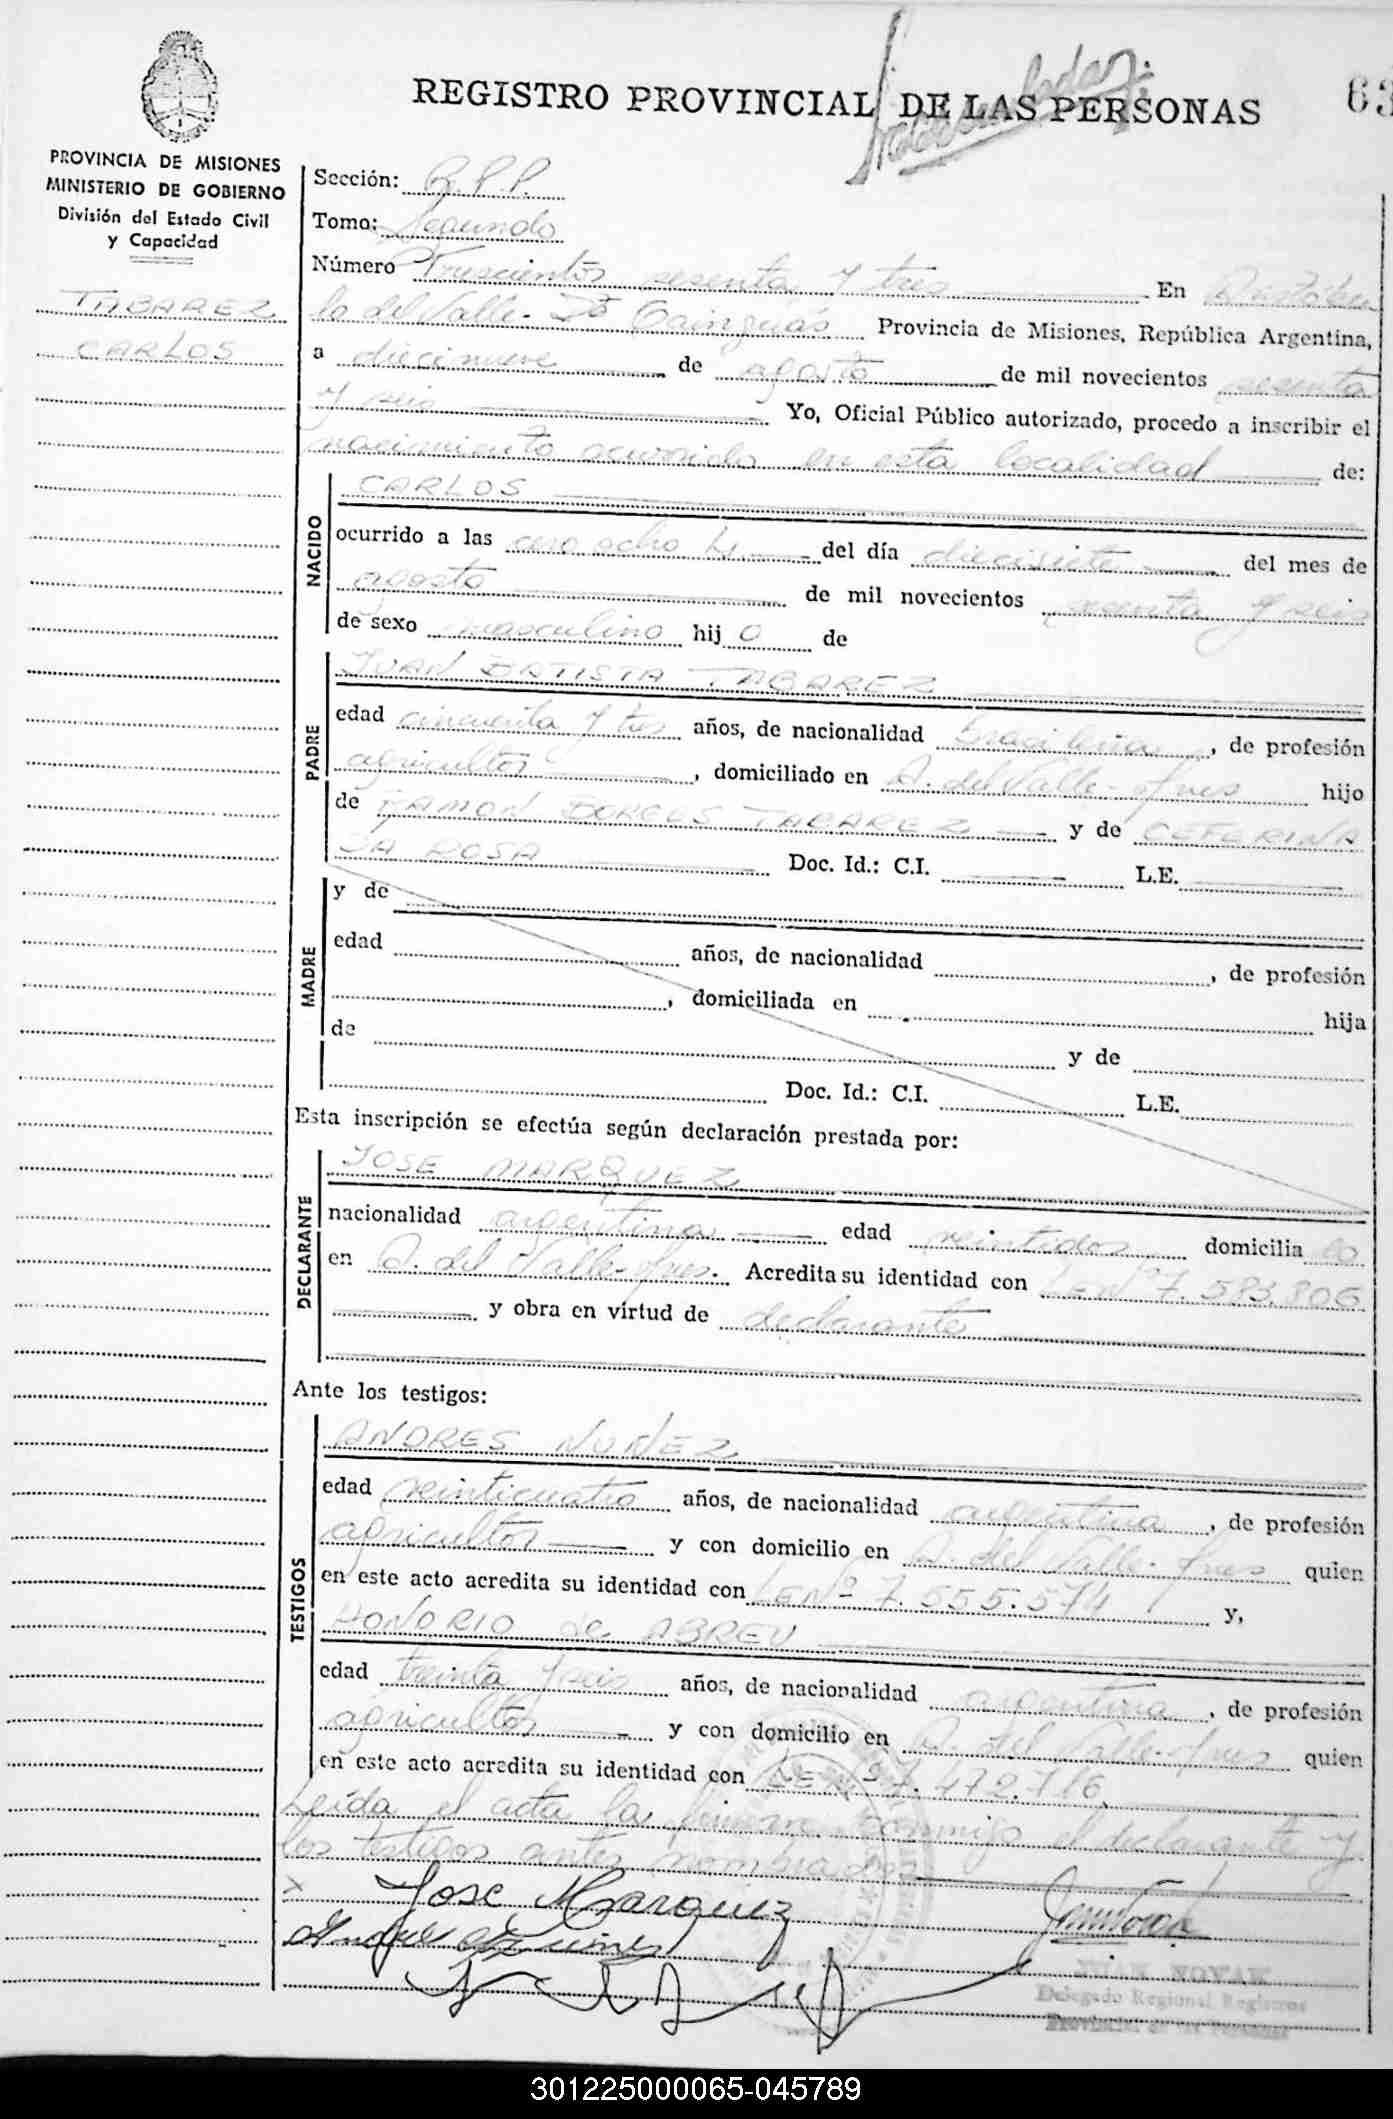 REGISTRO PROVINCIAL DE LAS PERSONAS
63
PROVINCIA DE MISIONES
MINISTERIO DE GOBIERNO
División del Estado Civil
y Capacidad
TABAREZ
CARLOS
Sección: R.P.P.
Tomo: Segundo
Número Trescientos sesenta y tres En Aristóbu
lo del Valle - Dº Cainguás Provincia de Misiones, República Argentina,
a diecinueve de agosto de mil novecientos sesenta
y seis Yo, Oficial Público autorizado, procedo a inscribir el
nacimiento ocurrido en esta localidad de:
NACIDO
CARLOS
ocurrido a las cero ocho h. del día diecisiete del mes de
agosto de mil novecientos sesenta y seis
de sexo masculino hijo de
PADRE
JUAN BATISTA TABAREZ
edad cincuenta y tres años, de nacionalidad brasileña, de profesión
agricultor, domiciliado en A. del Valle - Mnes hijo
de RAMON BORGES TABAREZ y de CEFERINA
DA ROSA Doc. Id.: C.I. L.E.
MADRE
y de
edad años, de nacionalidad , de profesión
, domiciliada en hija
de y de
Doc. Id.: C.I. L.E.
Esta inscripción se efectúa según declaración prestada por:
DECLARANTE
JOSE MARQUEZ
nacionalidad argentina edad veintidos domiciliado
en A. del Valle - Mnes. Acredita su identidad con LE Nº 7.583.806
y obra en virtud de declarante
Ante los testigos:
TESTIGOS
ANDRES NUÑEZ
edad veinticuatro años, de nacionalidad argentina, de profesión
agricultor y con domicilio en A. del Valle - Mnes quien
en este acto acredita su identidad con LE Nº 7.555.574 y,
HONORIO de ABREU
edad treinta y seis años, de nacionalidad argentina, de profesión
agricultor y con domicilio en A. del Valle - Mnes quien
en este acto acredita su identidad con LE Nº 7.472.716
Leída el acta la firman conmigo el declarante y
los testigos antes nombrados
x Jose Marquez
JUAN NOVAK
Delegado Regional Registro
Provincial de las Personas
301225000065-045789